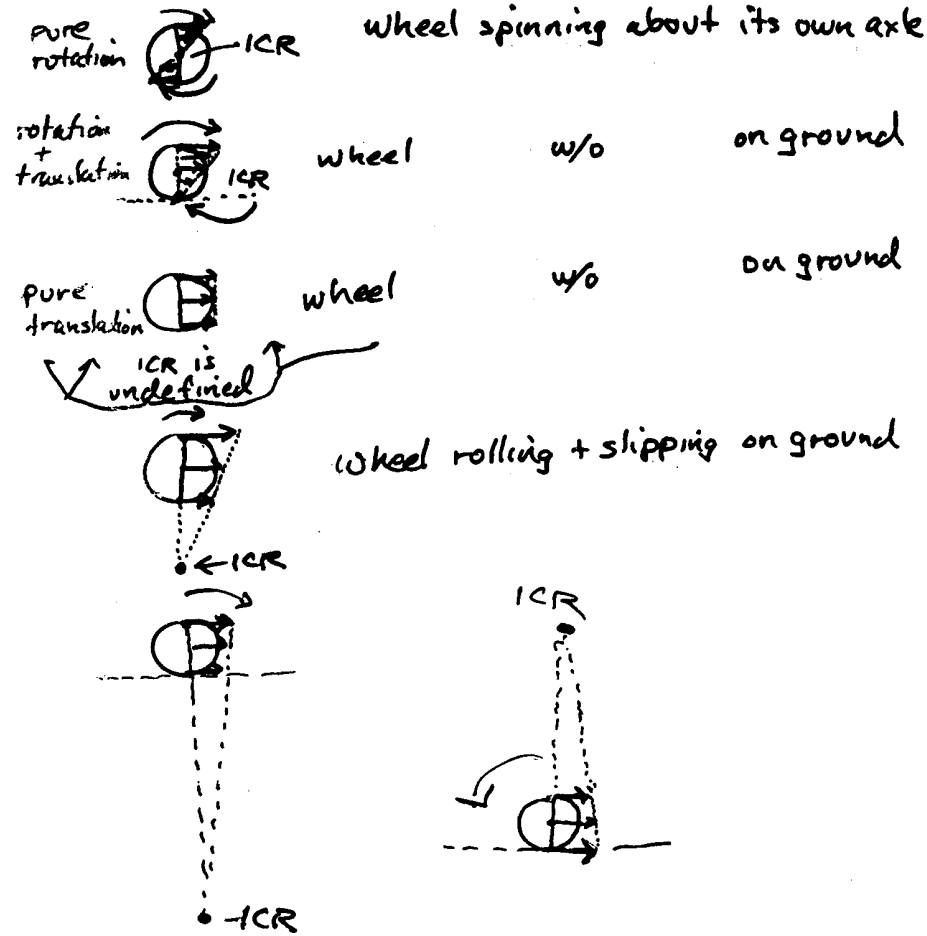 pure
rotation
ICR
wheel spinning about its own axle
rotation
+
translation
ICR
wheel w/o on ground
pure
translation
wheel w/o on ground
ICR is
undefined
wheel rolling + slipping on ground
ICR
ICR
ICR